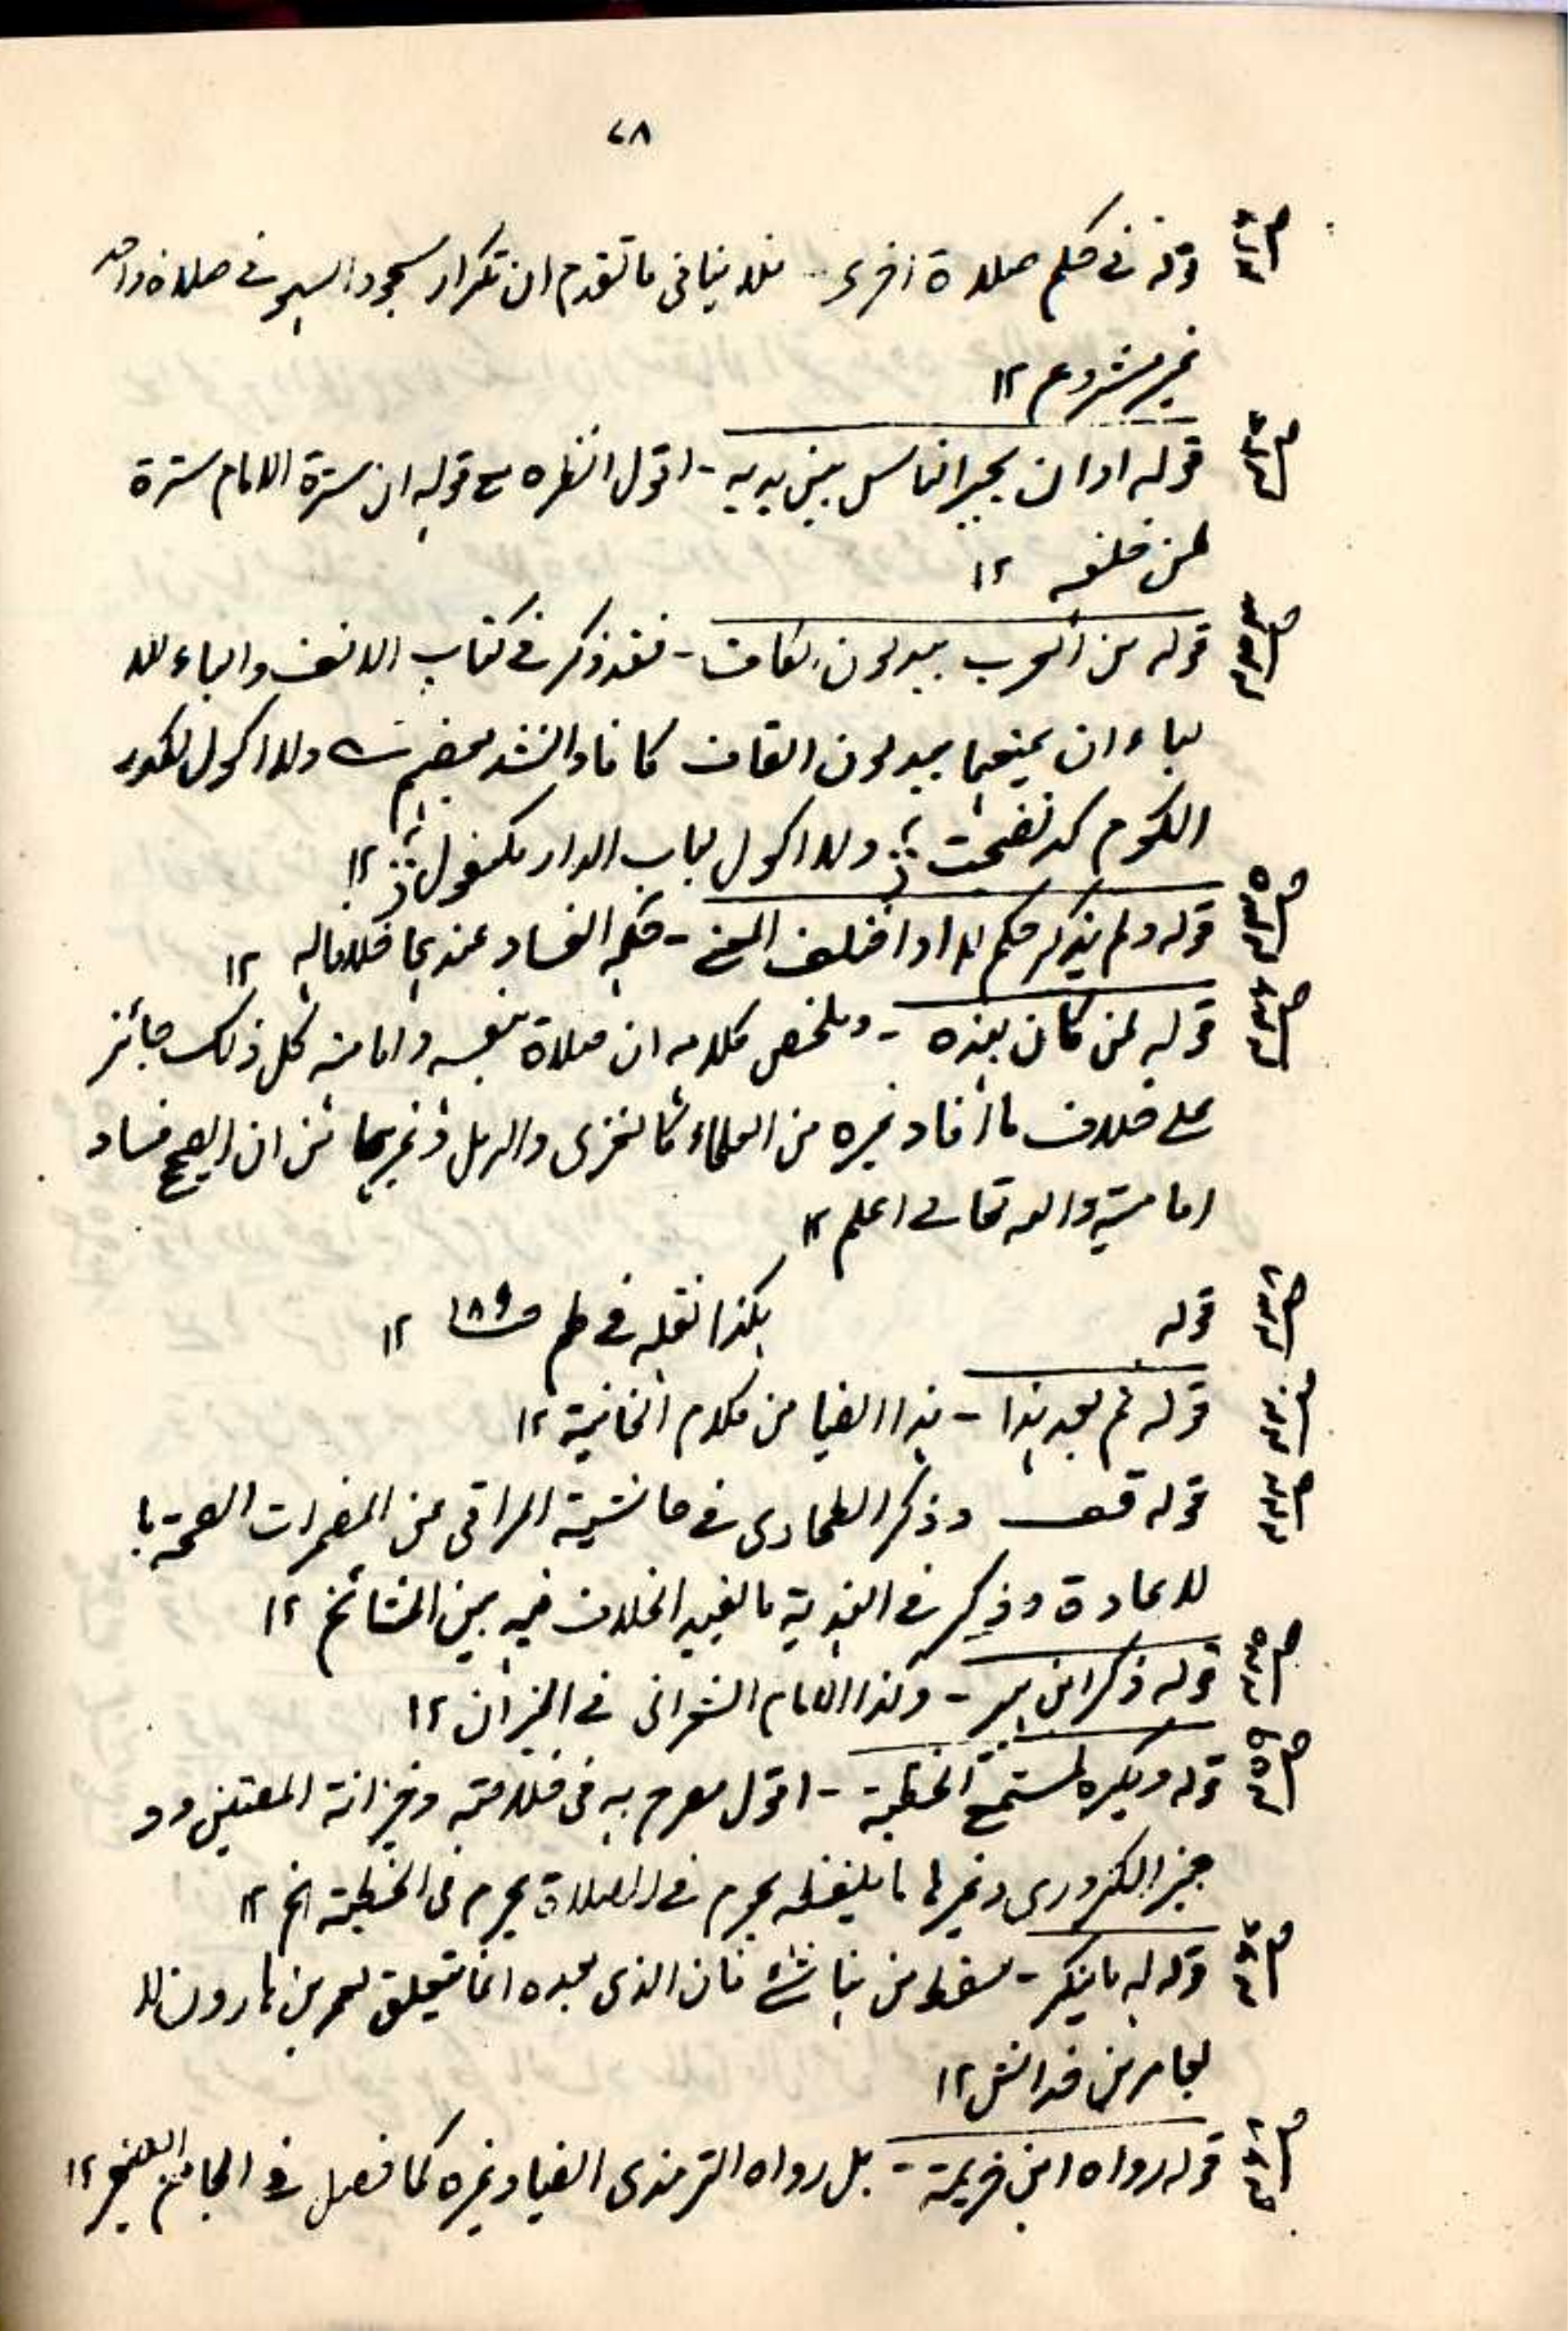 ٧٨
قوله في حكم صلاة اخرى - فلا ينافي ما تقدم ان تكرار سجود السهو في صلاة واحدة
غير مشروع ١٢
قوله اوان يجبر الناس بين يديه - اقول انظره مع قوله ان سترة الامام سترة
لمن خلفه ١٢
قوله من العرب يبدلون الكاف - فقد ذكر في كتاب الالف والباء للا
لباء ان بميعهما يبدلون القاف كافا وانشد بعضهم ولا اكول لكدر
الكوم كد نضجت ؛ ولا اكول لباب الدار مكفول ؛ ١٢
قوله ولم يذكر حكم ما اذا اختلف المعنى - حكمه الفساد عندهما خلافا له ١٢
قوله لمن كان هذه - وملخص كلامه ان صلاة نفسه وامامته كل ذلك جائز
على خلاف ما افاد غيره من العلماء كالغزي والرملي وغيرهما من ان الصحيح فساد
امامته والله تعالى اعلم ١٢
قوله هكذا نقله في ط م ص١٨٩ ١٢
قوله ثم بعد هذا - هذا ايضا من كلام الخانية ١٢
قوله قف وذكر الطحاوي في حاشية المراقي عن المضمرات الصحة با
لاعادة وذكر في الهندية ما يفيد الخلاف فيه بين المشائخ ١٢
قوله ذكر ابن - وكذا الامام الشعراني في الميزان ١٢
قوله ويكره لمستمع الخطبة - اقول صرح به في خلاصة وخزانة المفتين وو
جيز الكردري وغيرها ما يلفظه يحرم في الصلاة يحرم في الخطبة الخ ١٢
قوله له ما ينكر - سقط من هنا شئ فان الذي بعده انما يتعلق لعمر بن هارون لا
لعامر بن خداش ١٢
قوله رواه ابن خزيمة - بل رواه الترمذي ايضا وغيره كما فصل في الجامع الصغير ١٢